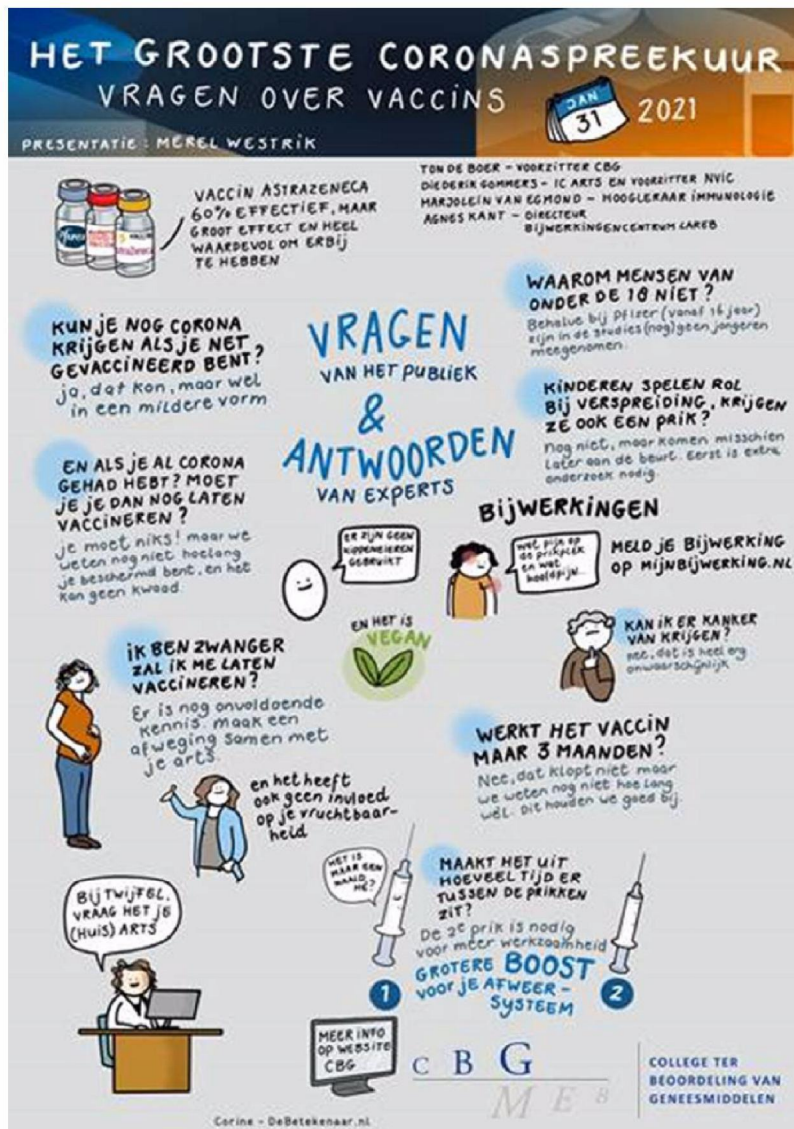 HET GROOTSTE CORONASPREEKUUR
VRAGEN OVER VACCINS
JAN
31
2021
PRESENTATIE: MEREL WESTRIK
VACCIN ASTRAZENECA
60% EFFECTIEF, MAAR
GROOT EFFECT EN HEEL
WAARDEVOL OM ERBIJ
TE HEBBEN
TON DE BOER – VOORZITTER CBG
DIEDERIK GOMMERS – IC ARTS EN VOORZITTER NVIC
MARJOLEIN VAN EGMOND – HOOGLERAAR IMMUNOLOGIE
AGNES KANT – DIRECTEUR
BIJWERKINGENCENTRUM LAREB
Pfizer
AstraZeneca
KUN JE NOG CORONA
KRIJGEN ALS JE NET
GEVACCINEERD BENT?
ja, dat kan, maar wel
in een mildere vorm
VRAGEN
VAN HET PUBLIEK
&
ANTWOORDEN
VAN EXPERTS
WAAROM MENSEN VAN
ONDER DE 18 NIET?
Behalve bij Pfizer (vanaf 16 jaar)
zijn in de studies (nog) geen jongeren
meegenomen.
KINDEREN SPELEN ROL
BIJ VERSPREIDING, KRIJGEN
ZE OOK EEN PRIK?
Nog niet, maar komen misschien
later aan de beurt. Eerst is extra
onderzoek nodig.
EN ALS JE AL CORONA
GEHAD HEBT? MOET
JE JE DAN NOG LATEN
VACCINEREN?
je moet niks! maar we
weten nog niet hoelang
je beschermd bent, en het
kan geen kwaad.
ER ZIJN GEEN
KIPPENEIEREN
GEBRUIKT
EN HET IS
VEGAN
BIJWERKINGEN
wat pijn op
de prikplek
en wat
hoofdpijn...
MELD JE BIJWERKING
OP MIJNBIJWERKING.NL
KAN IK ER KANKER
VAN KRIJGEN?
nee, dat is heel erg
onwaarschijnlijk
IK BEN ZWANGER
ZAL IK ME LATEN
VACCINEREN?
Er is nog onvoldoende
kennis. maak een
afweging samen met
je arts.
en het heeft
ook geen invloed
op je vruchtbaar-
heid
WERKT HET VACCIN
MAAR 3 MAANDEN?
Nee, dat klopt niet maar
we weten nog niet hoe lang
wél. Dit houden we goed bij.
BIJ TWIJFEL,
VRAAG HET JE
(HUIS) ARTS
HET IS
MAAR EEN
NAALD
HÈ?
MAAKT HET UIT
HOEVEEL TIJD ER
TUSSEN DE PRIKKEN
ZIT?
De 2e prik is nodig
voor meer werkzaamheid
GROTERE BOOST
VOOR JE AFWEER-
SYSTEEM
1
2
MEER INFO
OP WEBSITE
CBG
C B G
M E B
COLLEGE TER
BEOORDELING VAN
GENEESMIDDELEN
Corine - DeBetekenaar.nl